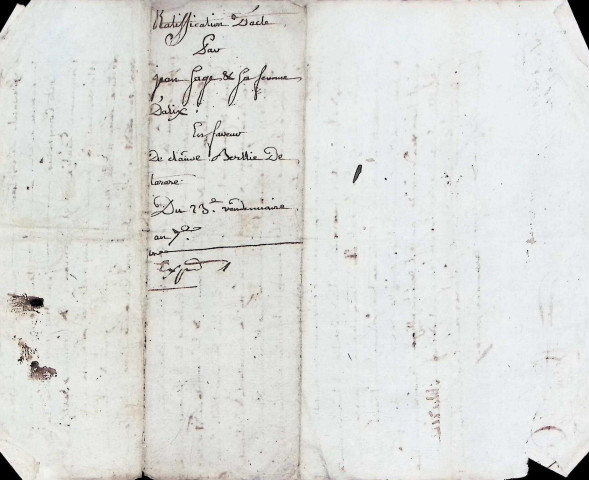 Ratiffication D'acte
Par
jean Sage & Sa femme
D'alix :
En faveur
De claude Berthie De
tarare.
Du 23.e vendemiaire
an 7.e
Expd